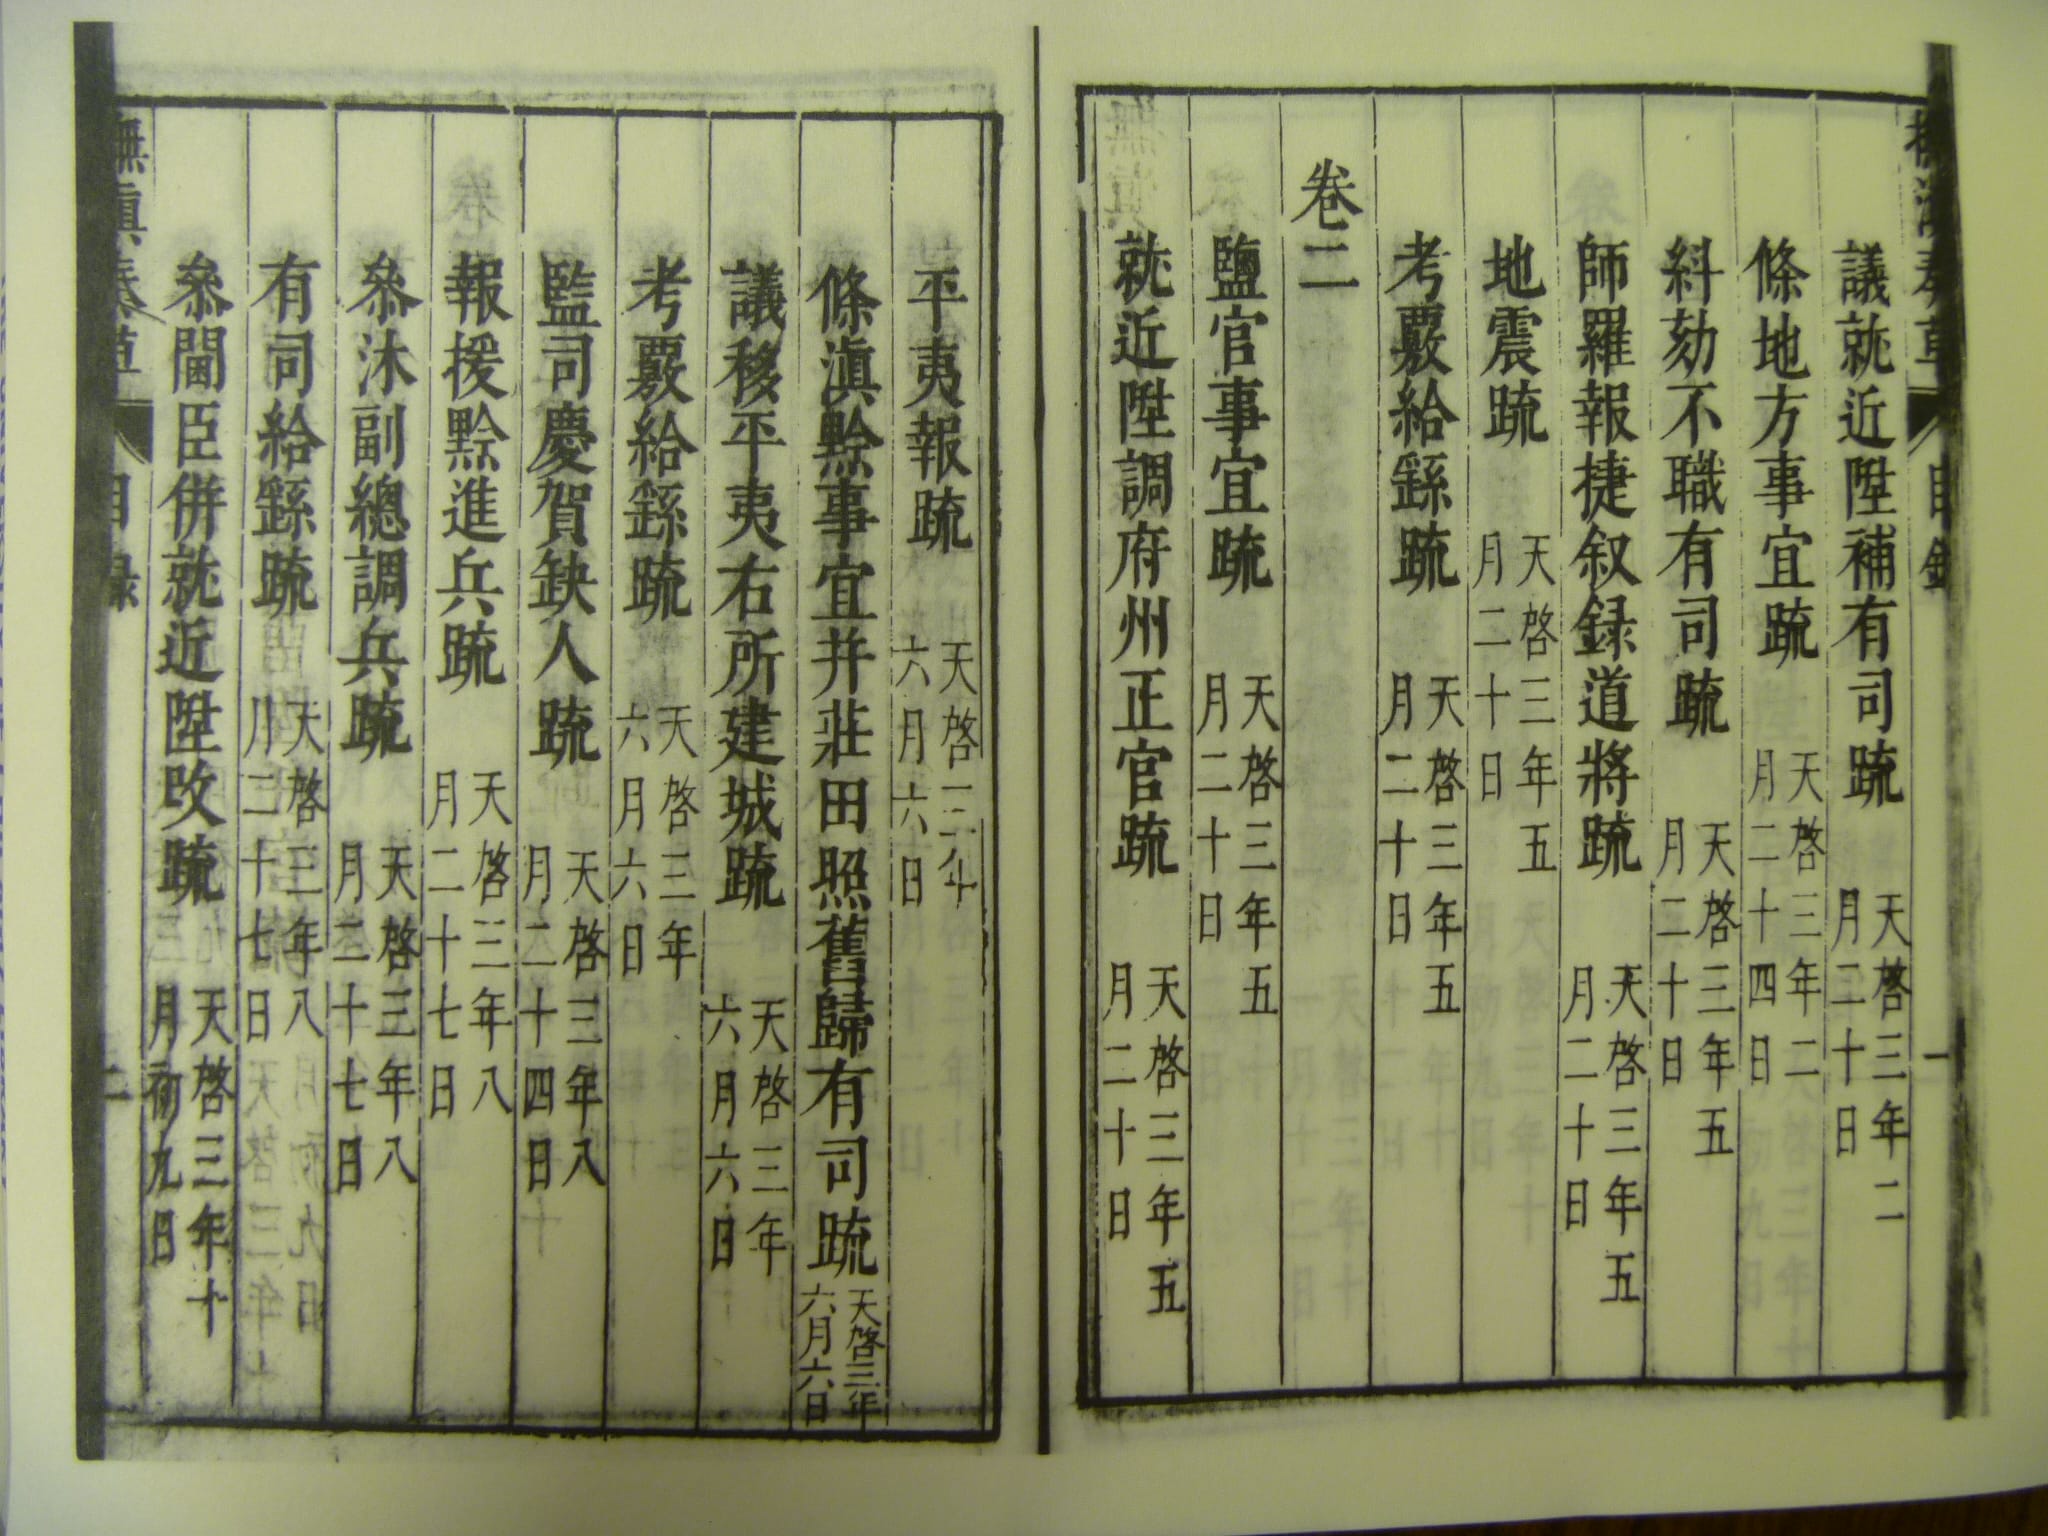 議就近陞補有司疏 天啓三年二月二十日
條地方事宜疏 天啓三年二月二十四日
糾劾不職有司疏 天啓三年五月二十日
師羅報捷叙録道將疏 天啓三年五月二十日
地震疏 天啓三年五月二十日
考覈給繇疏 天啓三年五月二十日
卷二
鹽官事宜疏 天啓三年五月二十日
就近陞調府州正官疏 天啓三年五月二十日
平夷報疏 天啓三年六月六日
條滇黔事宜并莊田照舊歸有司疏 天啓三年六月六日
議移平夷右所建城疏 天啓三年六月六日
考覈給繇疏 天啓三年六月六日
監司慶賀缺人疏 天啓三年八月二十四日
報援黔進兵疏 天啓三年八月二十七日
叅沐副總調兵疏 天啓三年八月二十七日
有司給繇疏 天啓三年八月二十七日
叅閫臣併就近陞改疏 天啓三年十月初九日
撫滇奏草 目録 二